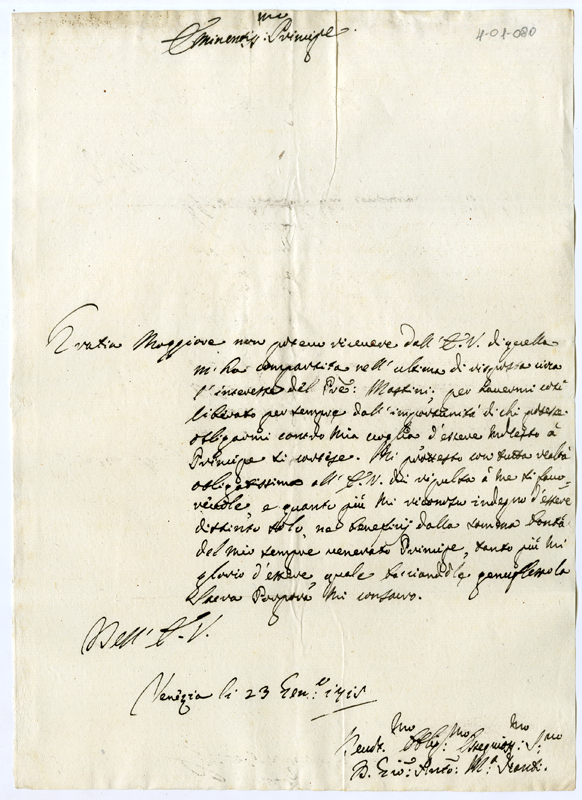 Eminentmo Principe
4-01-080
Gratia Maggiore non potevo ricevere dall' E.V. di quella
mi ha compartita nell' ultima di risposta circa
l' interesse del Pre: Mastini, per havermi così
liberato per sempre dall' importunità di chi potesse
obligarmi contro mia voglia d'essere molesto à
Principe sì cortese. Mi protesto con tutta realtà
obligatissimo all' E.V. di ripulsa à me sì favo-
revole, e quanto più mi riconosco indegno d'essere
distinto solo ne beneficij dalla somma bontà
del mio sempre venerato Principe, tanto più mi
glorio d'essere, quale bacciandole genuflesso la
Sacra Porpora mi consacro.
Dell' E.V.
Venezia li 23 Gen: 1715
mo Oblig: mo Ossequios: mo S: mo
D. Gio: Anto: Ma